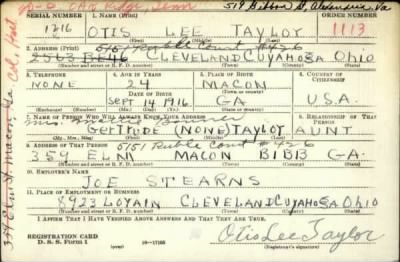 20-6 Oak Ridge, Tenn 519 Gibbon St, Alexandria, Va
SERIAL NUMBER 1. NAME (Print) ORDER NUMBER
1216 OTIS LEE TAYLOR 1113
(First) (Middle) (Last)
2. ADDRESS (Print) 5151 Ruble Court #426
2563 E 46 CLEVELAND CUYAHOGA OHIO
(Number and street or R. F. D. number) (Town) (County) (State)
3. TELEPHONE 4. AGE IN YEARS 5. PLACE OF BIRTH 6. COUNTRY OF CITIZENSHIP
NONE 24 MACON
DATE OF BIRTH
SEPT 14 1916 GA U.S.A.
(Exchange) (Number) (Mo.) (Day) (Yr.) (State or country)
7. NAME OF PERSON WHO WILL ALWAYS KNOW YOUR ADDRESS 8. RELATIONSHIP OF THAT PERSON
Mrs.
GERTRUDE (NONE) TAYLOR AUNT
(Mr., Mrs., Miss) (First) (Middle) (Last)
9. ADDRESS OF THAT PERSON 5151 Ruble Court #426
359 ELM MACON BIBB GA.
(Number and street or R. F. D. number) (Town) (County) (State)
10. EMPLOYER'S NAME
JOE STEARNS
11. PLACE OF EMPLOYMENT OR BUSINESS
8923 LOYAIN CLEVELAND CUYAHOGA OHIO
(Number and street or R. F. D. number) (Town) (County) (State)
I AFFIRM THAT I HAVE VERIFIED ABOVE ANSWERS AND THAT THEY ARE TRUE.
REGISTRATION CARD
D. S. S. Form 1 (over) 16-17105 Otis Lee Taylor
(Registrant's signature)
Elm St, Macon Ga.